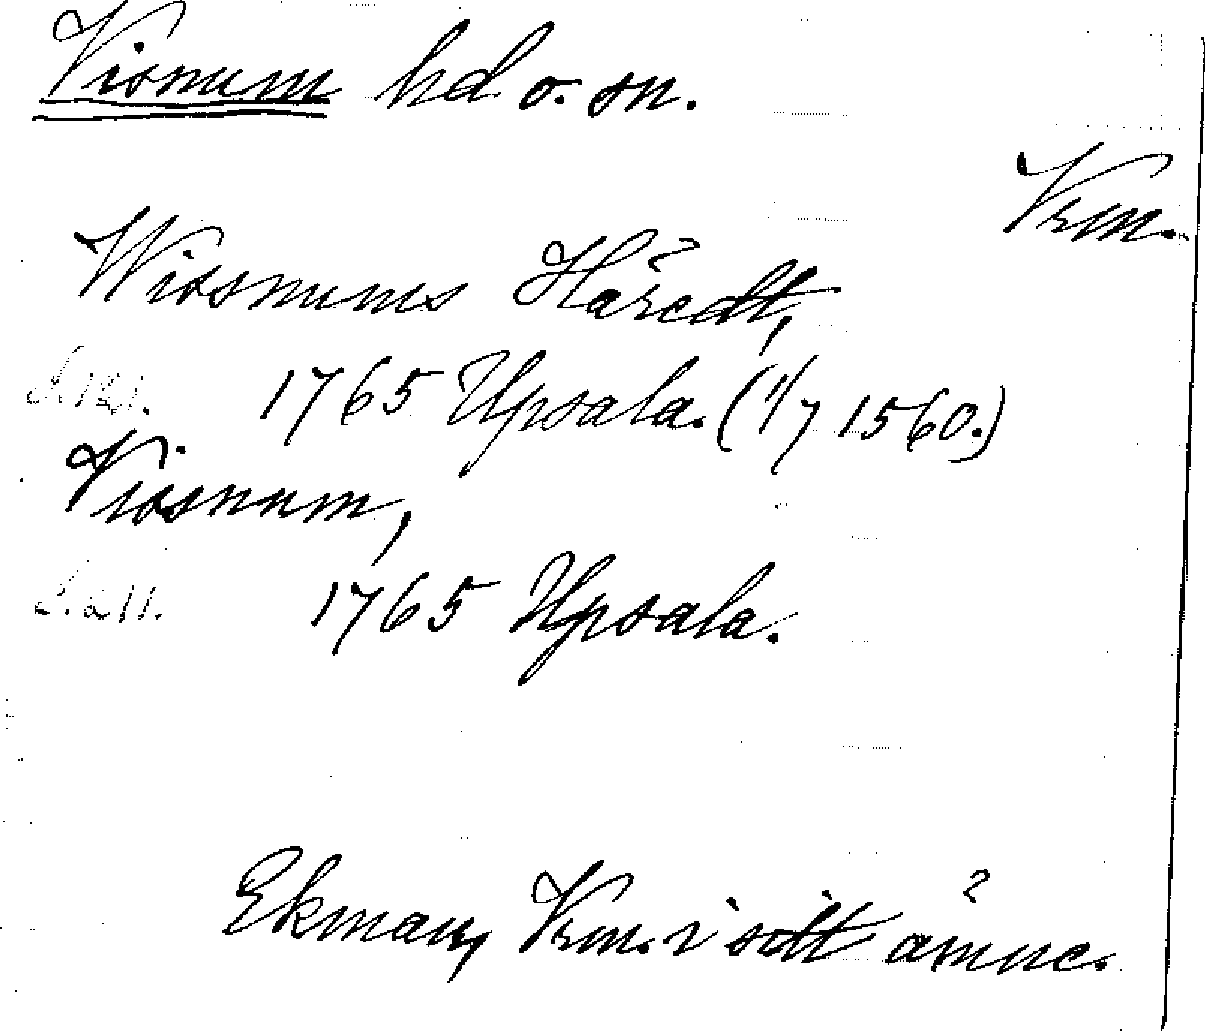 Visnum hd o. sn.
Vrm.
Wissnums Häredt,
S. 121. 1765 Upsala. (1/7 1560.)
Vissnum,
S. 211. 1765 Upsala.
Ekman, Vrm. i sitt ämne.